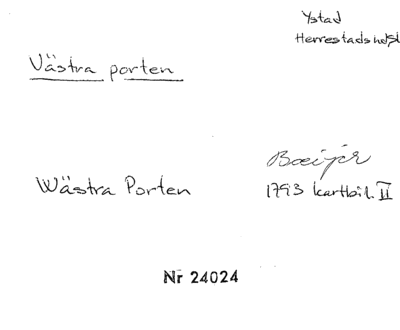 Ystad
Herrestads hd
Västra porten
Boeijer
Wästra Porten
1793 kartbil. II
Nr 24024